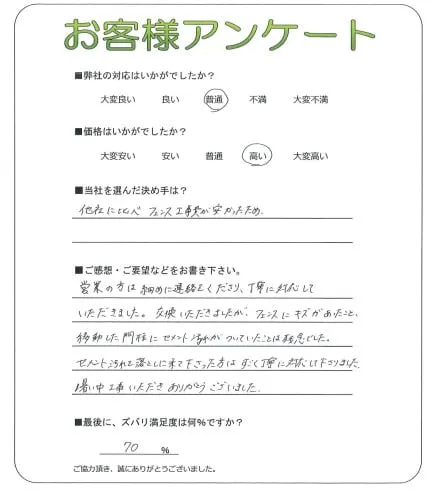 お客様アンケート
■弊社の対応はいかがでしたか？
大変良い 良い 普通 不満 大変不満
■価格はいかがでしたか？
大変安い 安い 普通 高い 大変高い
■当社を選んだ決め手は？
他社に比べ フェンス工事費が安かったため。
■ご感想・ご要望などをお書き下さい。
営業の方は細めに連絡をくださり、丁寧に対応して
いただきました。交換いただきましたが、フェンスにキズがあったこと、
移動した門柱にセメント汚れがついていたことは残念でした。
セメント汚れを落としに来て下さった方は すごく丁寧に対応して下さりました。
暑い中工事いただき ありがとうございました。
■最後に、ズバリ満足度は何％ですか？
70 ％
ご協力頂き、誠にありがとうございました。